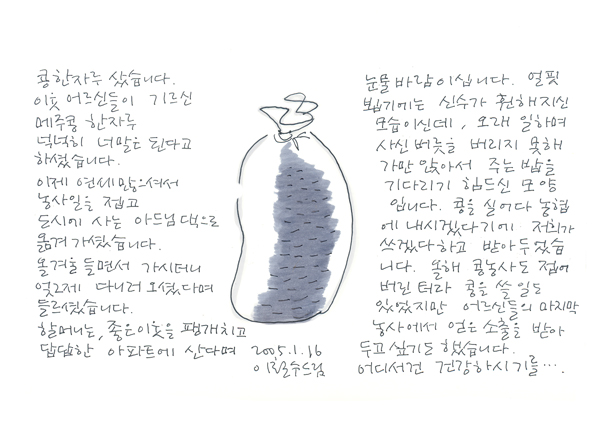 콩한자루 샀습니다.
이웃 어르신들이 기르신
메주콩 한자루
넉넉히 너말은 된다고
하셨습니다.
이제 연세 많으셔서
농사일을 접고
도시에 사는 아드님 댁으로
옮겨 가셨습니다.
올겨울 들면서 가시더니
엊그제 다니러 오셨다며
들르셨습니다.
할머니는, 좋은이웃을 팽개치고
답답한 아파트에 산다며
눈물바람이십니다. 얼핏
뵙기에는 신수가 훤해지신
모습이신데, 오래 일하며
사신 버릇을 버리지 못해
가만 앉아서 주는 밥을
기다리기 힘드신 모양
입니다. 콩을 실어다 농협
에 내시겠다기에 저희가
쓰겠다하고 받아두었습
니다. 올해 콩농사도 접어
버린 터라 콩을 쓸 일도
있었지만 어르신들의 마지막
농사에서 얻은 소출을 받아
두고 싶기도 했습니다.
어디서건 건강하시기를….
2005.1.16
이철수드림